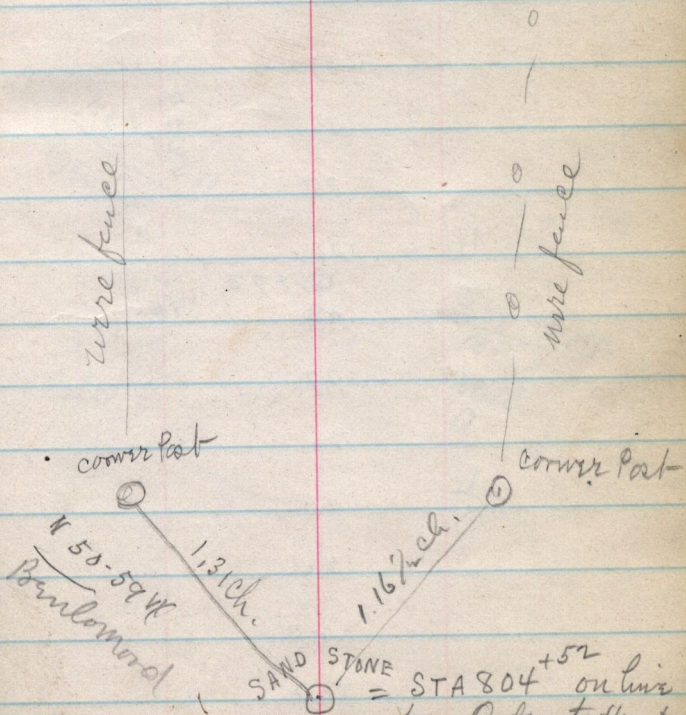 wire fence
wire fence
corner Post
corner Post
N 50-59 W
Benlomond
1.31 ch.
1.16½ ch.
SAND STONE
= STA 804 +52 on line